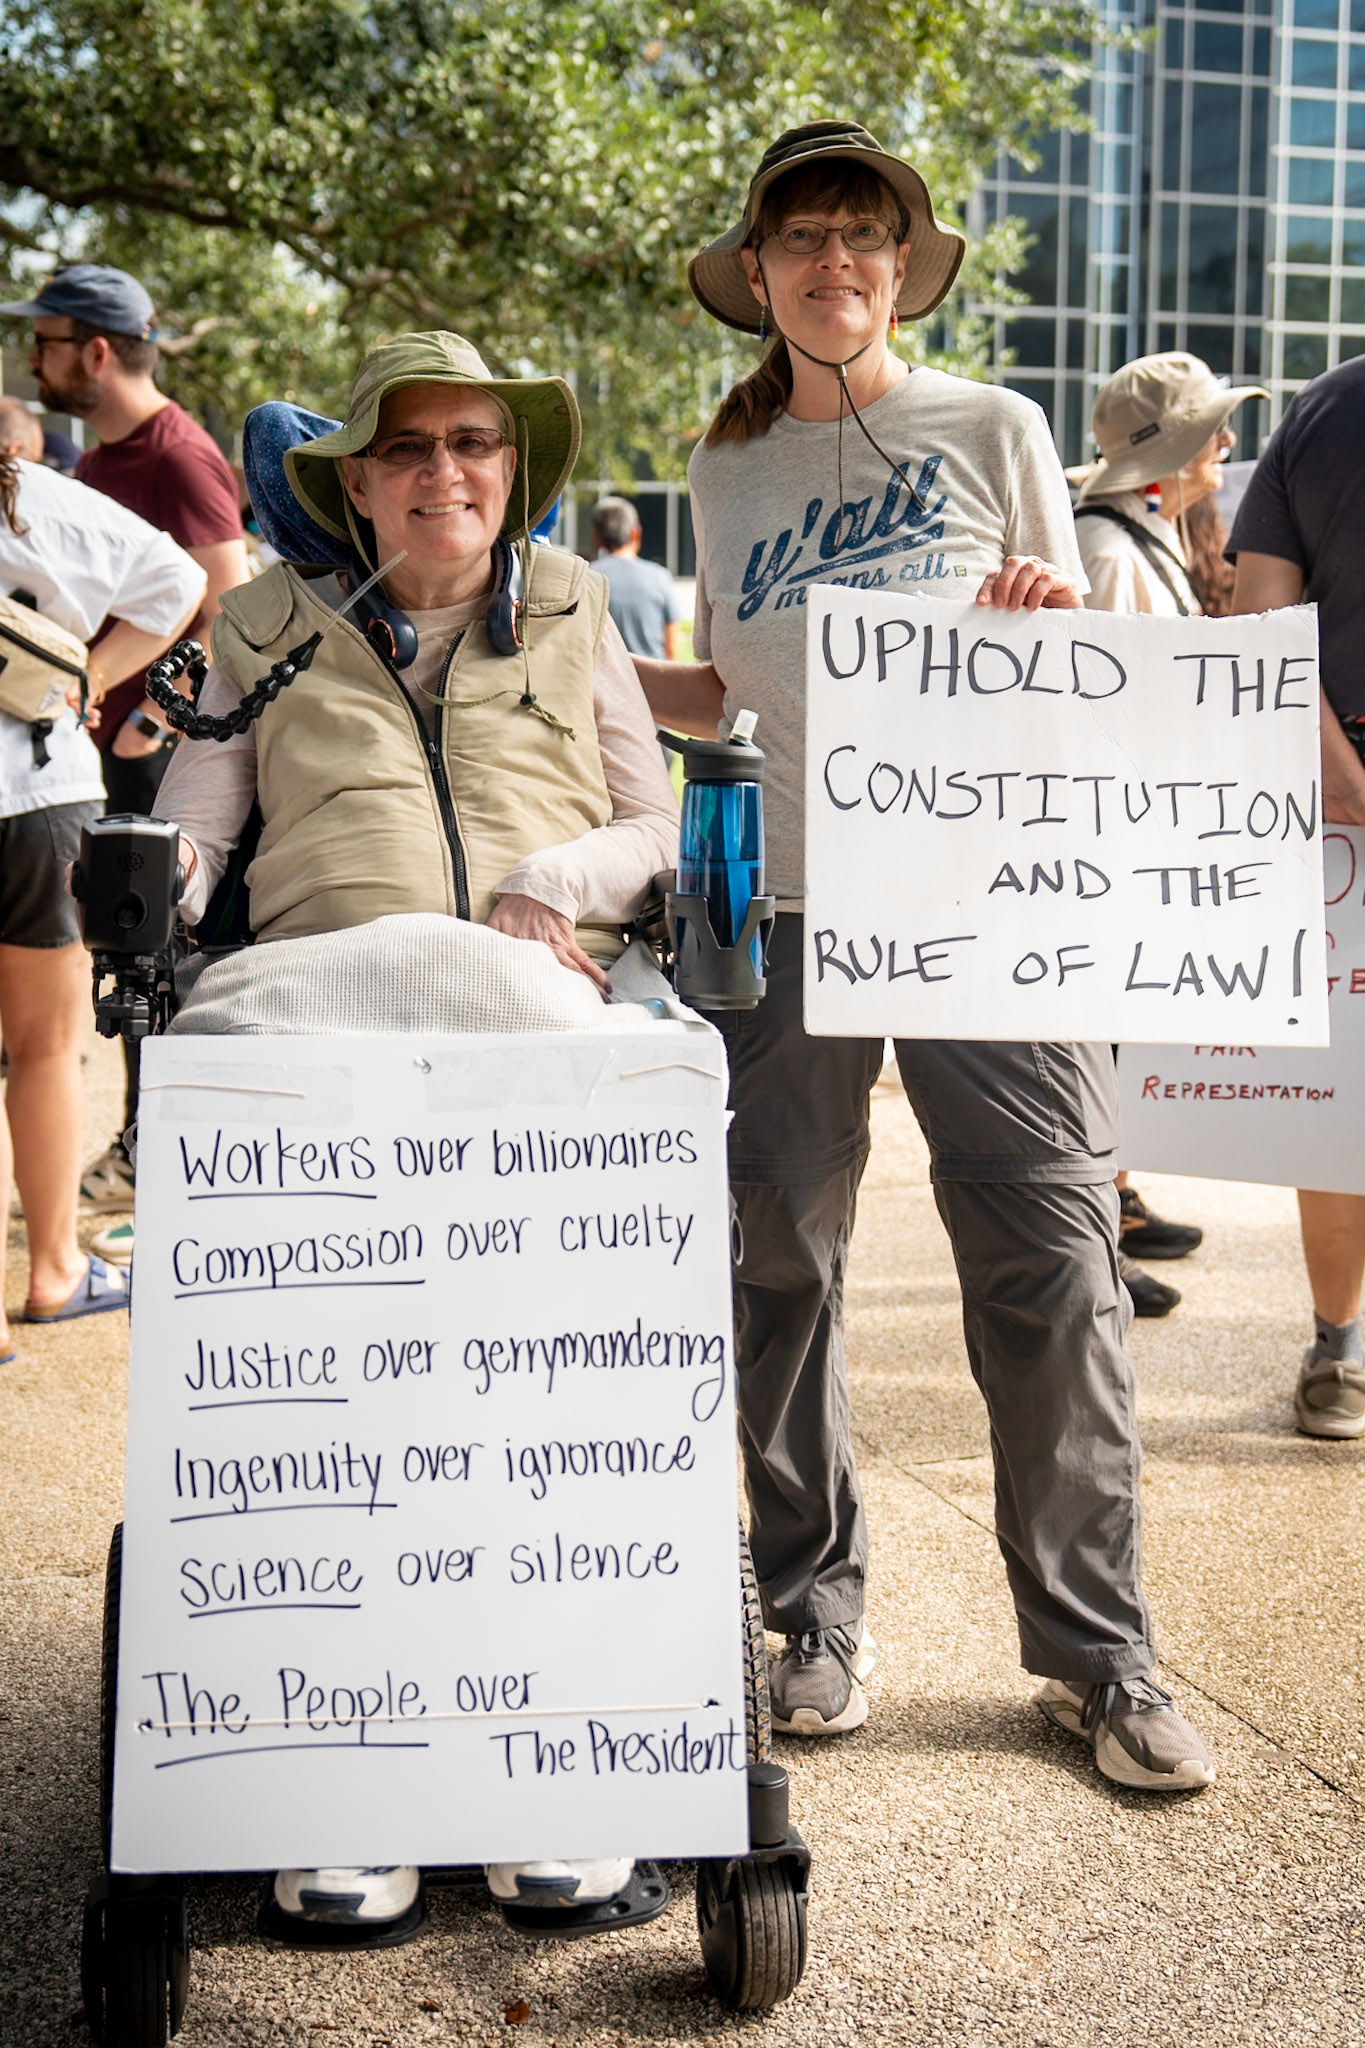 y'all
means all
UPHOLD THE
CONSTITUTION
AND THE
RULE OF LAW!
FAIR
REPRESENTATION
Workers over billionaires
Compassion over cruelty
Justice over gerrymandering
Ingenuity over ignorance
Science over silence
The People over
The President